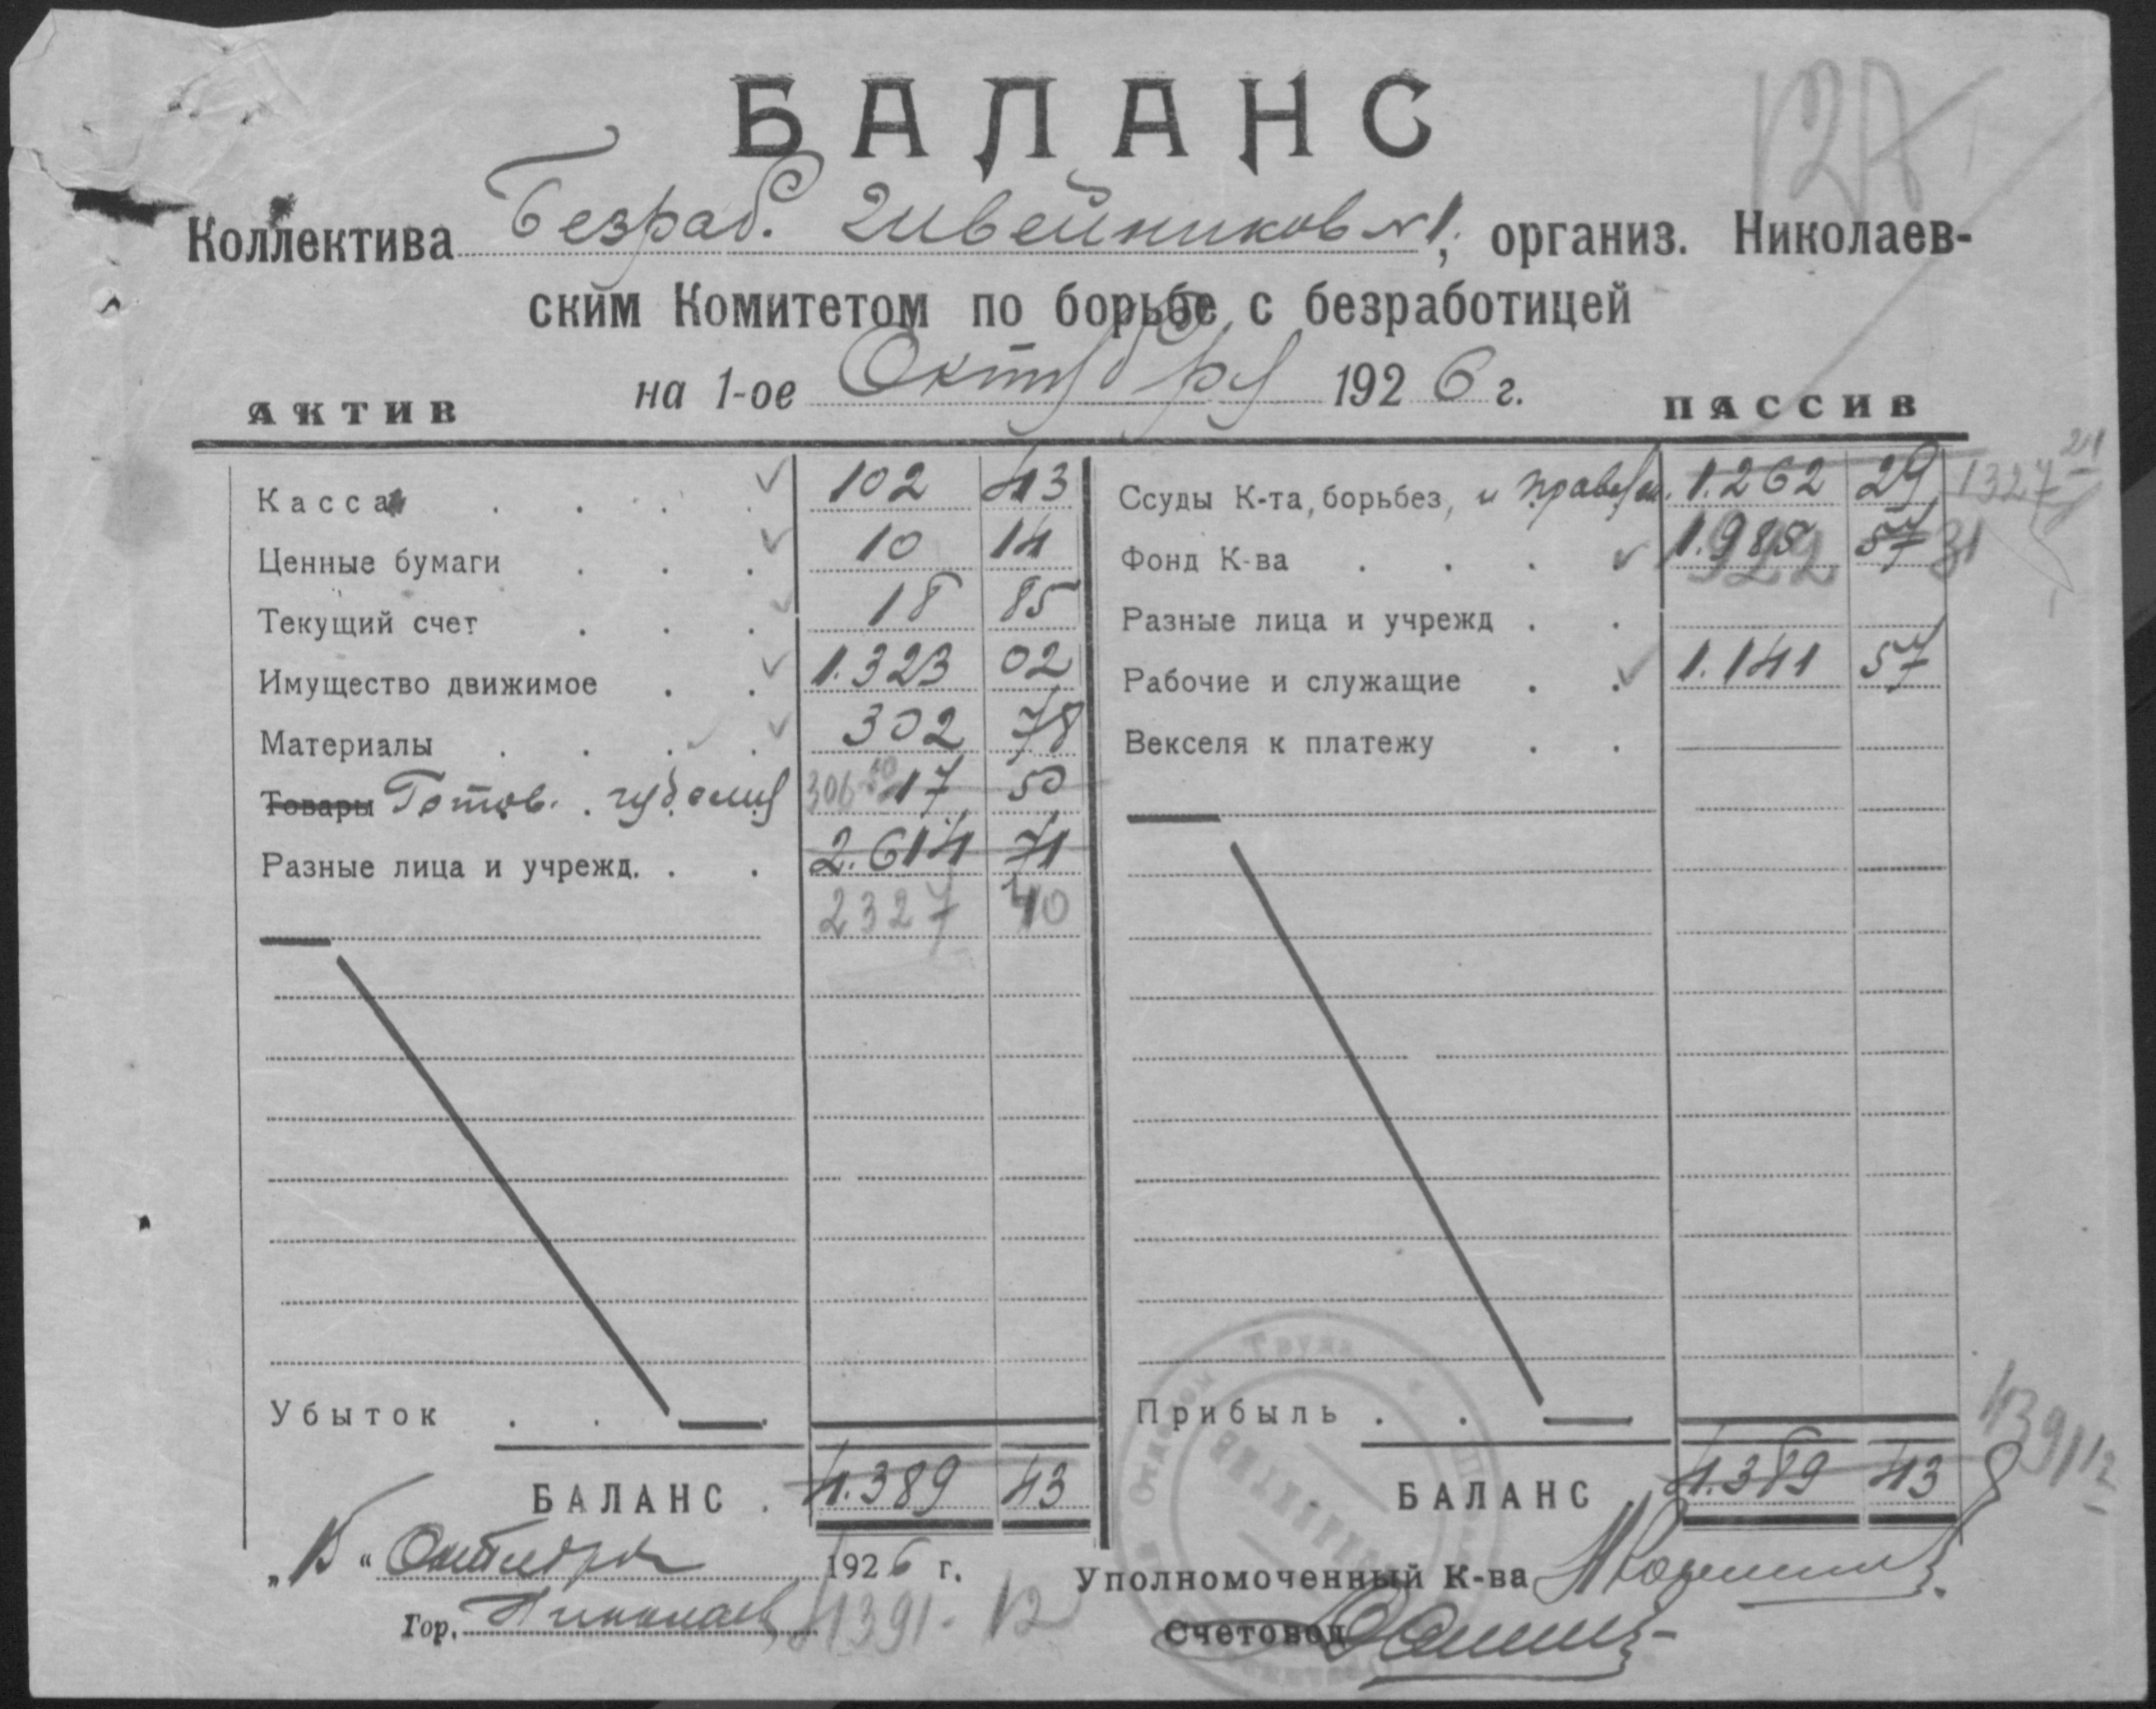 127
БАЛАНС
Коллектива Безраб. Швейников №1, организ. Николаев-
ским Комитетом по борьбе с безработицей
на 1-ое Октября 1926 г.
АКТИВ
ПАССИВ
Касса . . . . 102 43
Ценные бумаги . . . 10 14
Текущий счет . . . 18 85
Имущество движимое . . 1.323 02
Материалы . . . . 302 78
Товары Готов. изделия 306 50 17 50
Разные лица и учрежд. . . 2.614 71
2327 40
Убыток . . .
БАЛАНС . 4.389 43
Ссуды К-та, борьбез, и 1.262 29 1327 24
Фонд К-ва . . . 1.985 57 922 31
Разные лица и учрежд . .
Рабочие и служащие . . 1.141 57
Векселя к платежу . .
Прибыль . .
БАЛАНС 4.389 43 4391 12
„15“ Октября 1926 г.
Гор. Николаев 4391-12
Уполномоченный К-ва
Счетовод
Отдел Труда